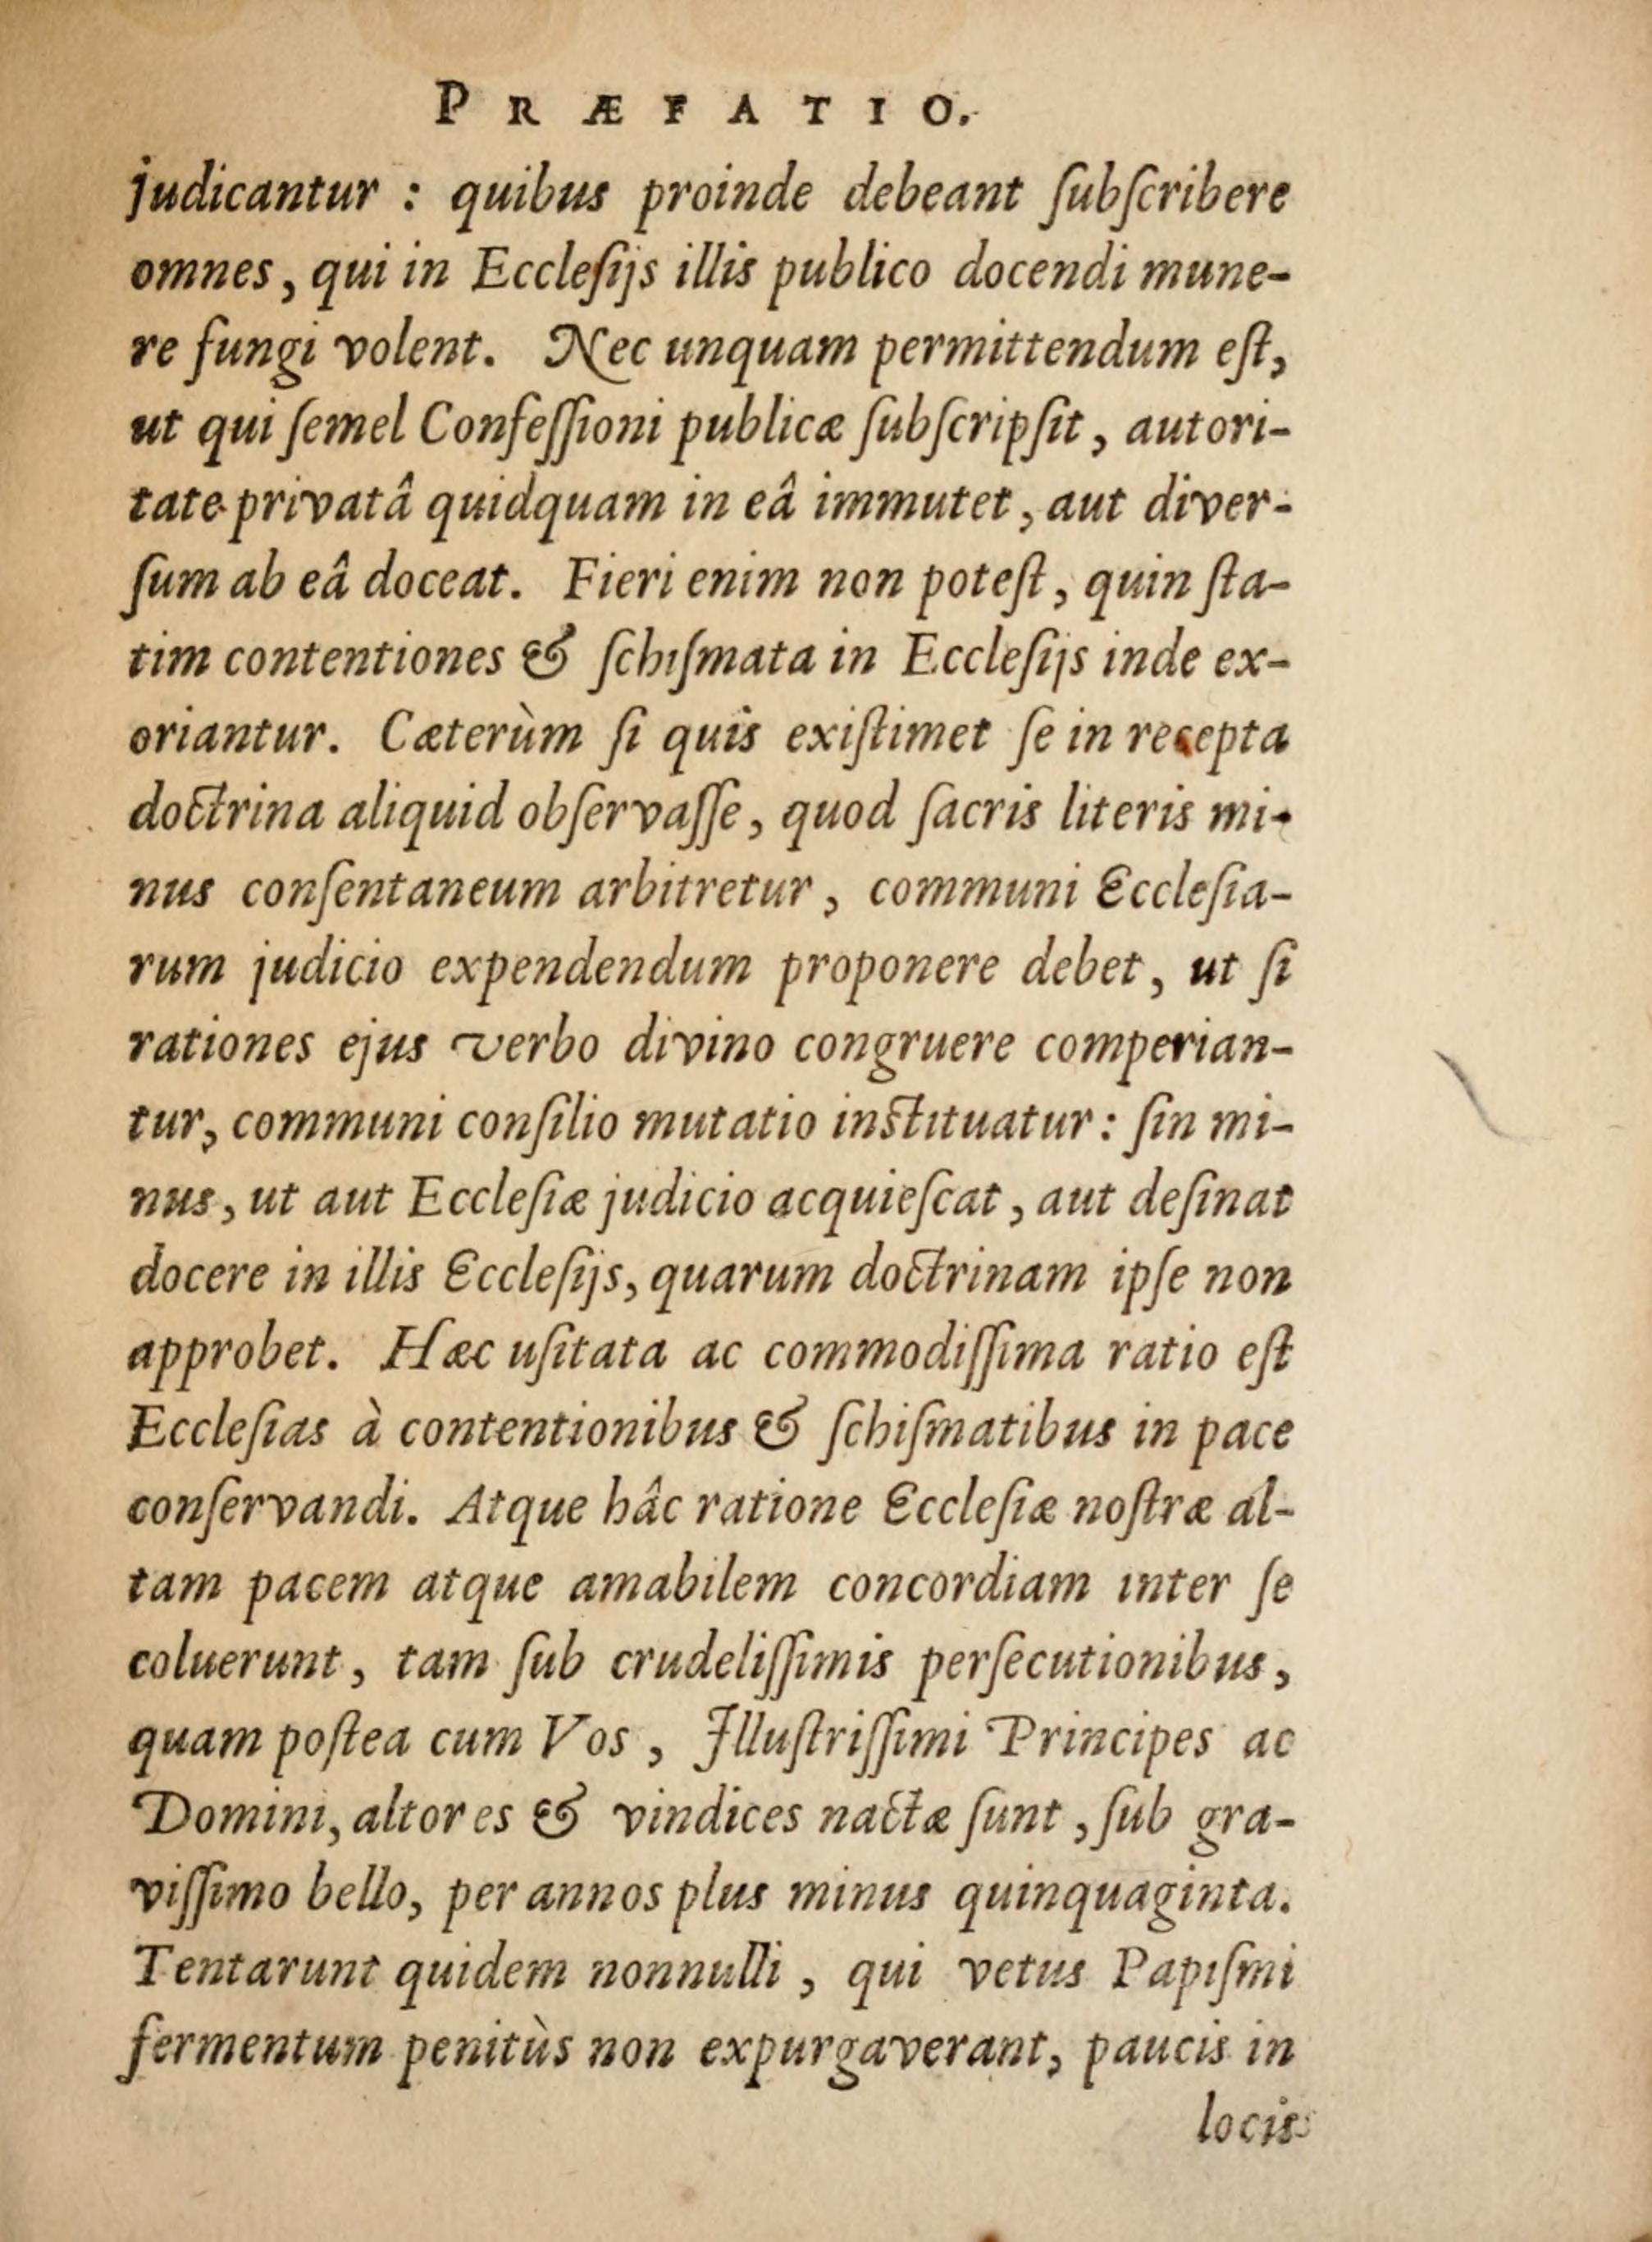 PRÆFATIO.
judicantur : quibus proinde debeant ſubſcribere
omnes, qui in Eccleſijs illis publico docendi mune-
re fungi volent. Nec unquam permittendum eſt,
ut qui ſemel Confeſſioni publicæ ſubſcripſit, autori-
tate privatâ quidquam in eâ immutet, aut diver-
ſum ab eâ doceat. Fieri enim non poteſt, quin ſta-
tim contentiones & ſchiſmata in Eccleſijs inde ex-
oriantur. Cæterùm ſi quis exiſtimet ſe in recepta
doctrina aliquid obſervaſſe, quod ſacris literis mi-
nus conſentaneum arbitretur, communi Eccleſia-
rum judicio expendendum proponere debet, ut ſi
rationes ejus verbo divino congruere comperian-
tur, communi conſilio mutatio inſtituatur: ſin mi-
nus, ut aut Eccleſiæ judicio acquieſcat, aut deſinat
docere in illis Eccleſijs, quarum doctrinam ipſe non
approbet. Hæc uſitata ac commodiſſima ratio eſt
Eccleſias à contentionibus & ſchiſmatibus in pace
conſervandi. Atque hâc ratione Eccleſiæ noſtræ al-
tam pacem atque amabilem concordiam inter ſe
coluerunt, tam ſub crudeliſſimis perſecutionibus,
quam poſtea cum Vos, Illuſtriſſimi Principes ac
Domini, altores & vindices nactæ ſunt, ſub gra-
viſſimo bello, per annos plus minus quinquaginta.
Tentarunt quidem nonnulli, qui vetus Papiſmi
fermentum penitùs non expurgaverant, paucis in
locis